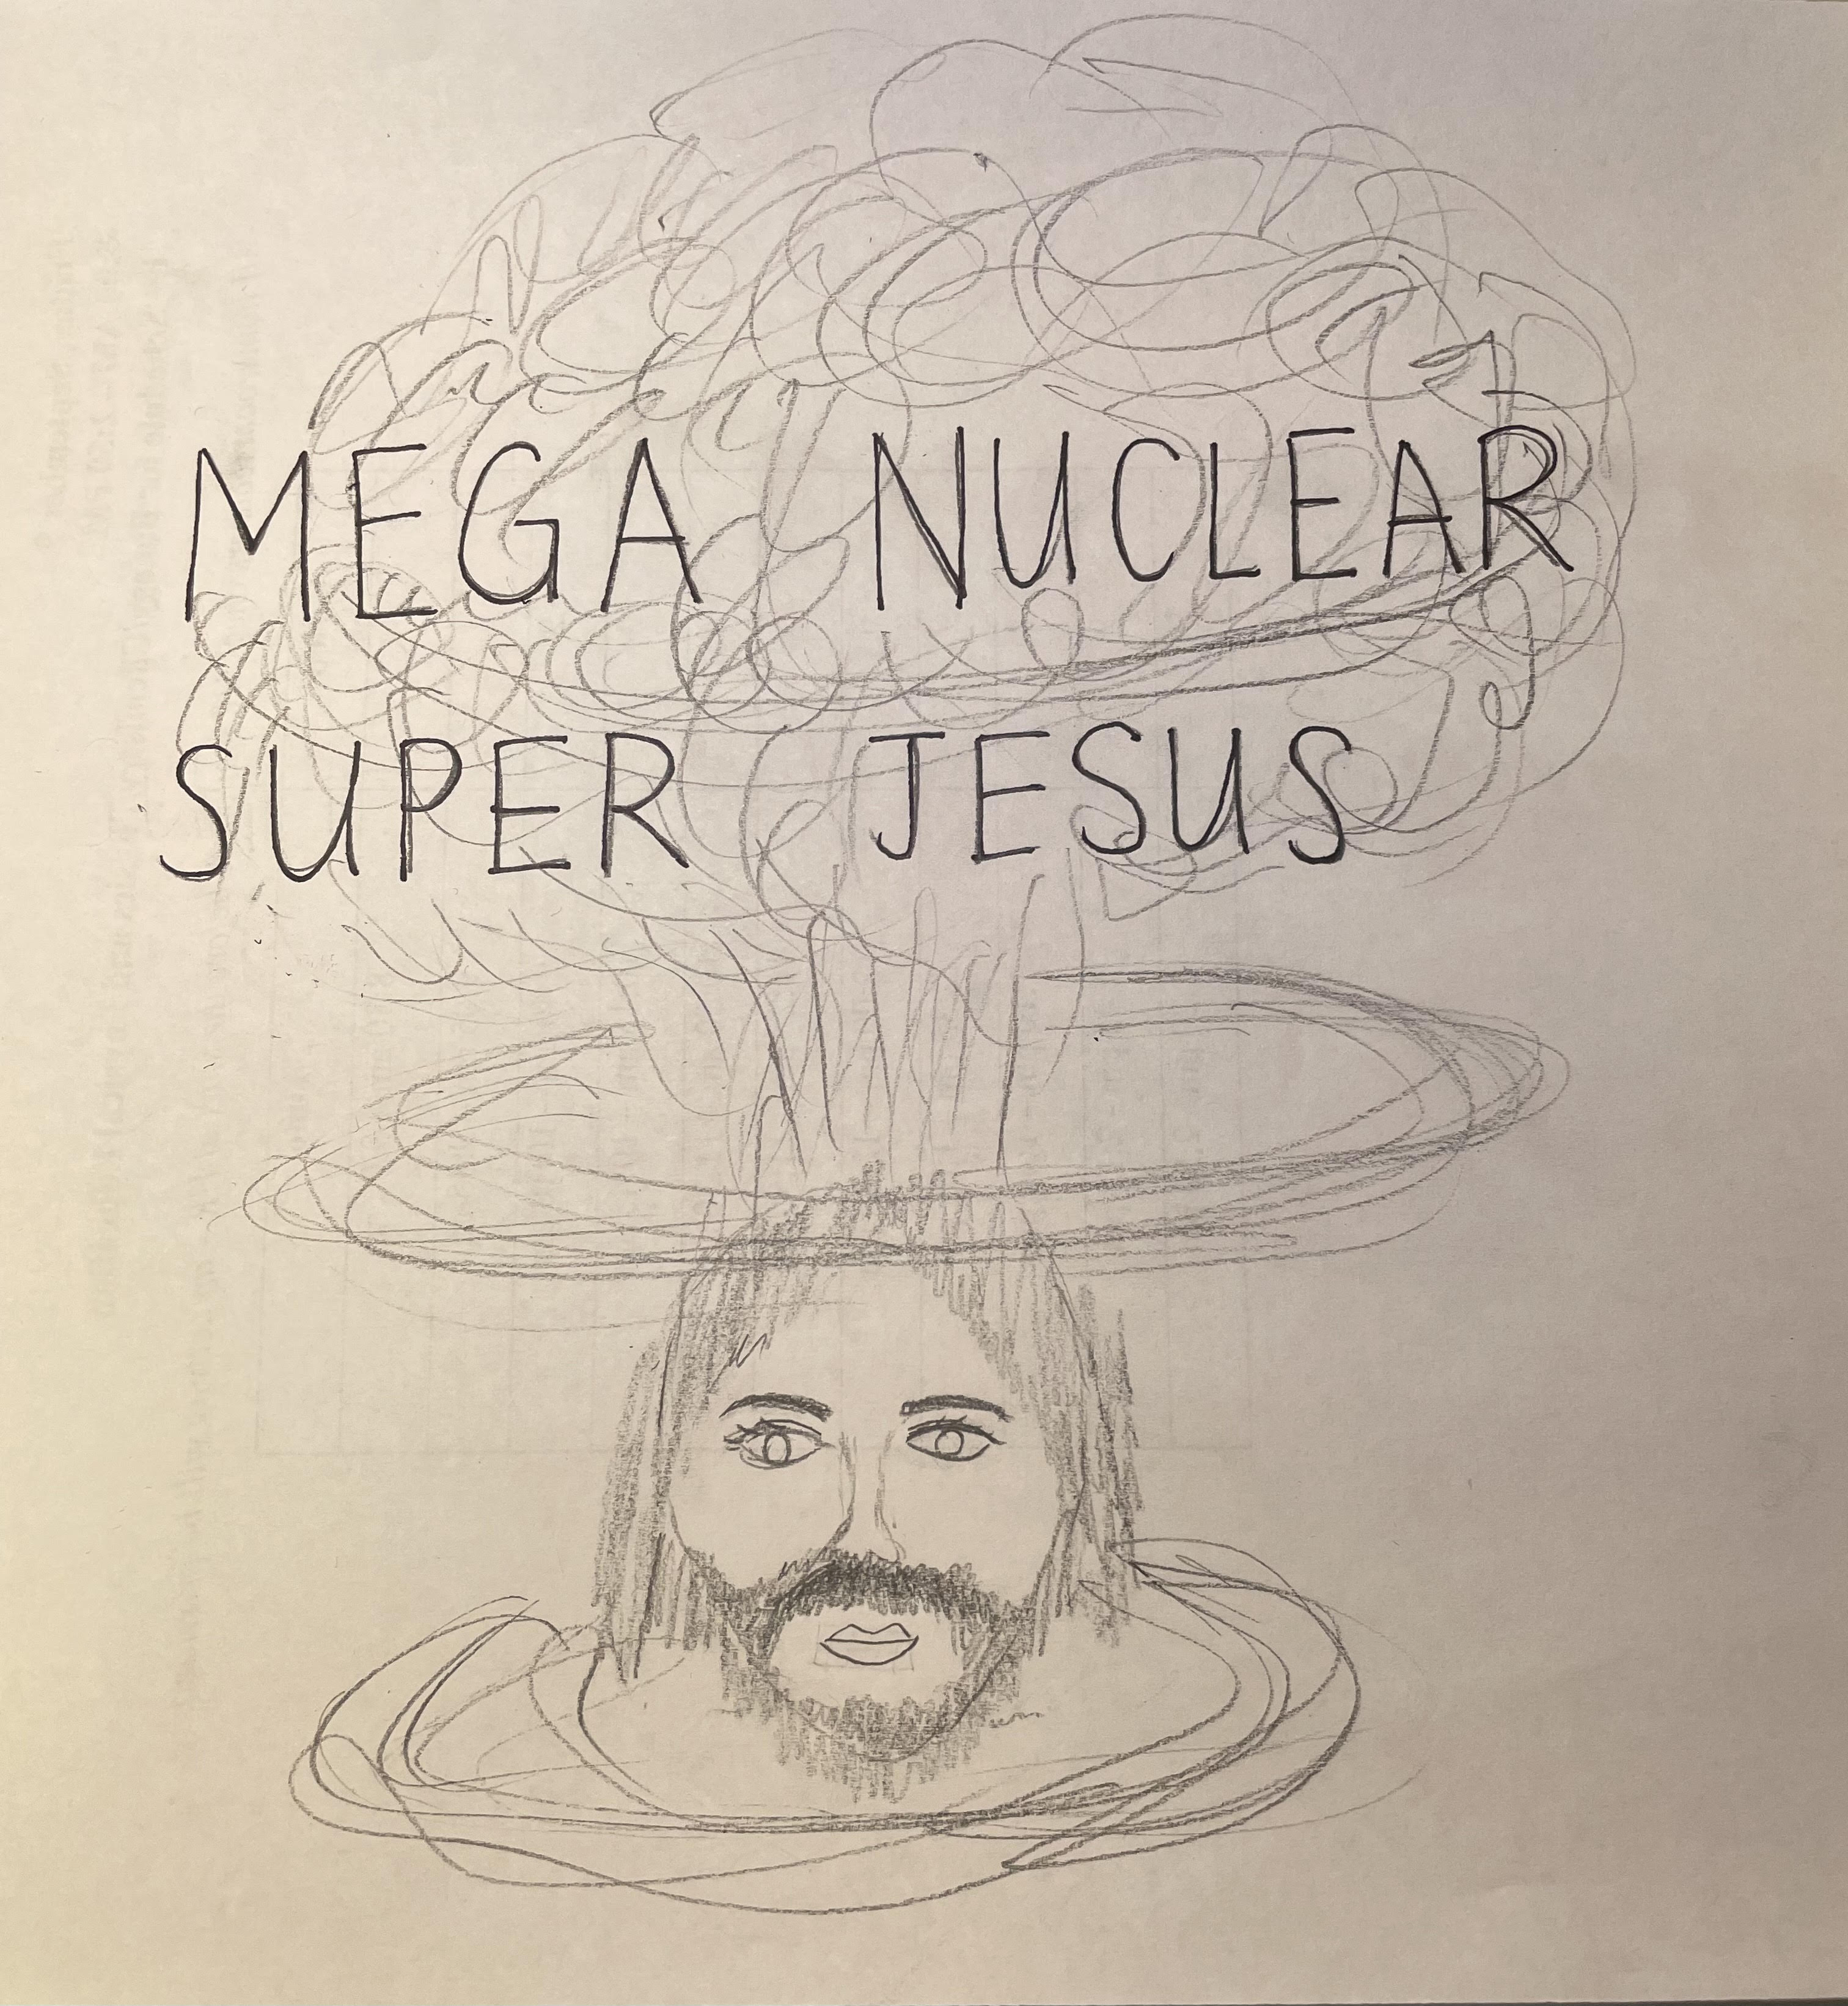 MEGA NUCLEAR
SUPER JESUS